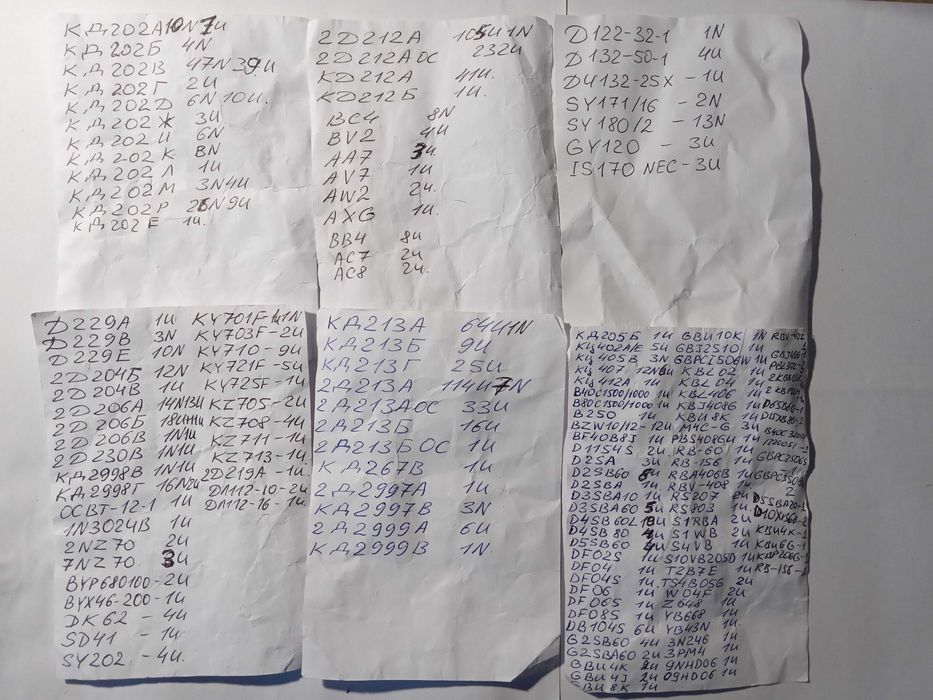 КД202А 10N 7И
КД202Б 4N
КД202В 47N 39И
КД202Г 2И
КД202D 6N 10И.
КД202Ж 3И
КД202И 6N
КД202К 8N
КД202Л 1И
КД202М 3N4И
КД202Р 26N 9И
КД202Е 1И.
2D212А 105И 1N
2D212А ОС 232И
КD212А 41И.
КD212Б 1И.
BC4 8N
BV2 4И
AA7 3И.
AV7 1И
AW2 2И.
AXG 1И.
BB4 8И
AC7 2И
AC8 2И.
D122-32-1 1N
D132-50-1 4И
D4132-25X - 1И
SY171/16 - 2N
SY180/2 - 13N
GY120 - 3И
IS170 NEC - 3И
D229А 1И KY701F-1И1N
D229В 3N KY703F-2И
D229Е 10N KY710-9И
2D204Б 12N KY721F-5И
2D204В 1И KY725F-1И
2D206А 14N13И KZ705-2И
2D206Б 18И KZ708-4И
2D206В 1N1И KZ711-1И
2D230В 1N1И KZ713-1И
КД2998В 1N1И 2D219А-1И
КД2998Г 16N2И DЛ112-10-2И
ОСВТ-12-1 1И DЛ112-16-1И.
1N3024B 1И
2NZ70 2И
7NZ70 3И
BYP680100-2И
BYX46-200-1И
DK62 - 4И
SD41 - 1И
SY202 - 4И.
КД213А 64И1N
КД213Б 9И
КД213Г 25И
2Д213А 114И7N
2Д213АОС 33И
2Д213Б 16И
2Д213Б ОС 1И
КД267В 1И
2Д2997А 1И
КД2997В 3N
2Д2999А 6И
КД2999В 1N.
КД205Б 1И GBU10K 1N RBV-402
КЦ402А/Е 5И GBJ2510 1И
КЦ405В 3N GBPC1506W 1И
КЦ407 12N8И KBL02 1И
КЦ412А 1И KBL04 1И
B40C1500/1000 1И KBL406 1И
B80C1500/1000 1И KBJ408G 1И
B250 1И KBU8K 1И
BZW10/12-12И M4C-G 3И
BF40B8J 1И PBS408GU 1И
D1154S 2И RB-60 1И
D2SA 3И RB-156 1И
D2SB60 8И RBA406B 1И
D2SBA 1И RBV-408 1И
D3SBA10 1И RS207 2И
D3SBA60 5И RS803 1И
D4SB60L 18И S1RBA 2И
D4SB80 4И S1WB 2И
D5SB60 4И S4VB 1И
DF02S 1И S10VB20 1И
DF04 1И T2B7E 1И
DF04S 1И TS4B05G 2И
DF06 1И W04F 2И
DF06S 1И Z648 1И
DF08S 1И YB668 1И
DB104S 6И YB43N 1И
G2SB60 4И 3N246 1И
G2SBA60 2И 3PM4 1И
GBU4K 2И 9NHD06 1И
GBU4J 2И 09HD06 1И
GBU8K 1И